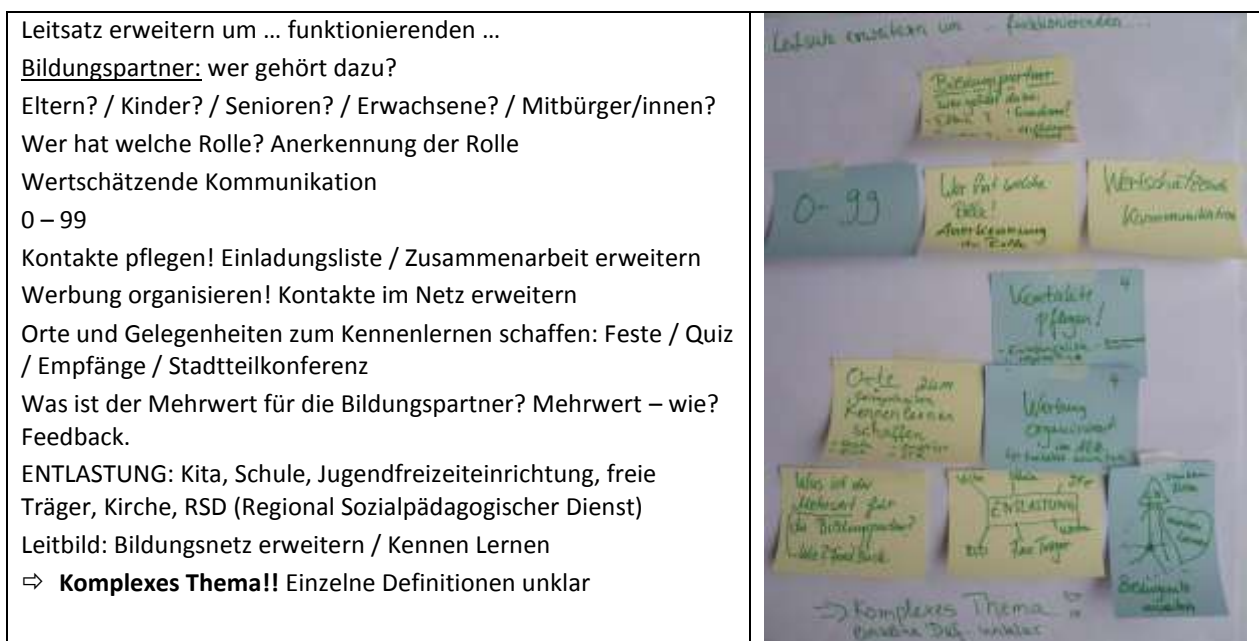 Leitsatz erweitern um … funktionierenden …
Bildungspartner: wer gehört dazu?
Eltern? / Kinder? / Senioren? / Erwachsene? / Mitbürger/innen?
Wer hat welche Rolle? Anerkennung der Rolle
Wertschätzende Kommunikation
0 – 99
Kontakte pflegen! Einladungsliste / Zusammenarbeit erweitern
Werbung organisieren! Kontakte im Netz erweitern
Orte und Gelegenheiten zum Kennenlernen schaffen: Feste / Quiz
/ Empfänge / Stadtteilkonferenz
Was ist der Mehrwert für die Bildungspartner? Mehrwert – wie?
Feedback.
ENTLASTUNG: Kita, Schule, Jugendfreizeiteinrichtung, freie
Träger, Kirche, RSD (Regional Sozialpädagogischer Dienst)
Leitbild: Bildungsnetz erweitern / Kennen Lernen
⇨ Komplexes Thema!! Einzelne Definitionen unklar
Leitsatz erweitern um … funktionierenden …
Bildungspartner
wer gehört dazu
0-99
Wer hat welche
Rolle!
Anerkennung
der Rolle
Wertschätzende
Kommunikation
Kontakte 4
pflegen!
Orte zum
Kennenlernen
schaffen
4
Werbung
Was ist der
Mehrwert für
die Bildungspartner?
ENTLASTUNG
RSD
Freie Träger
⇒ Komplexes Thema !!
einzelne Def. unklar